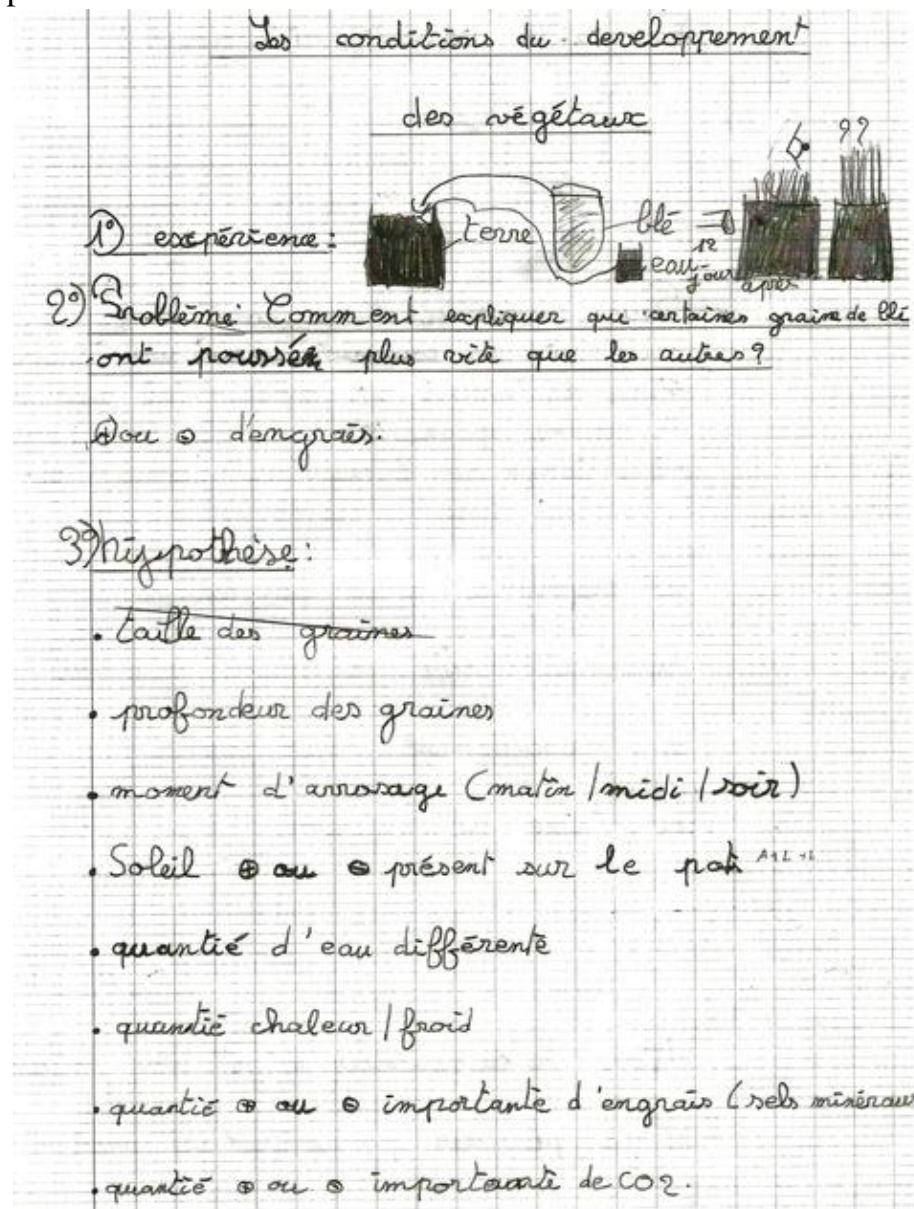 Les conditions du developpement
des végétaux
??
1°) expérience :
terre
blé
eau
12
jour
après
2°) Problème: Comment expliquer que certaines graine de blé
ont poussér plus vite que les autres ?
⊕ ou ⊖ d'engrais.
3°) hypothèse :
. taille des graines
. profondeur des graines
. moment d'arrosage (matin / midi / soir)
. Soleil ⊕ ou ⊖ présent sur le pot
. quantié d'eau différente
. quantié chaleur / froid
. quantié ⊕ ou ⊖ importante d'engrais (sels minéraux
. quantié ⊕ ou ⊖ importante de CO2.